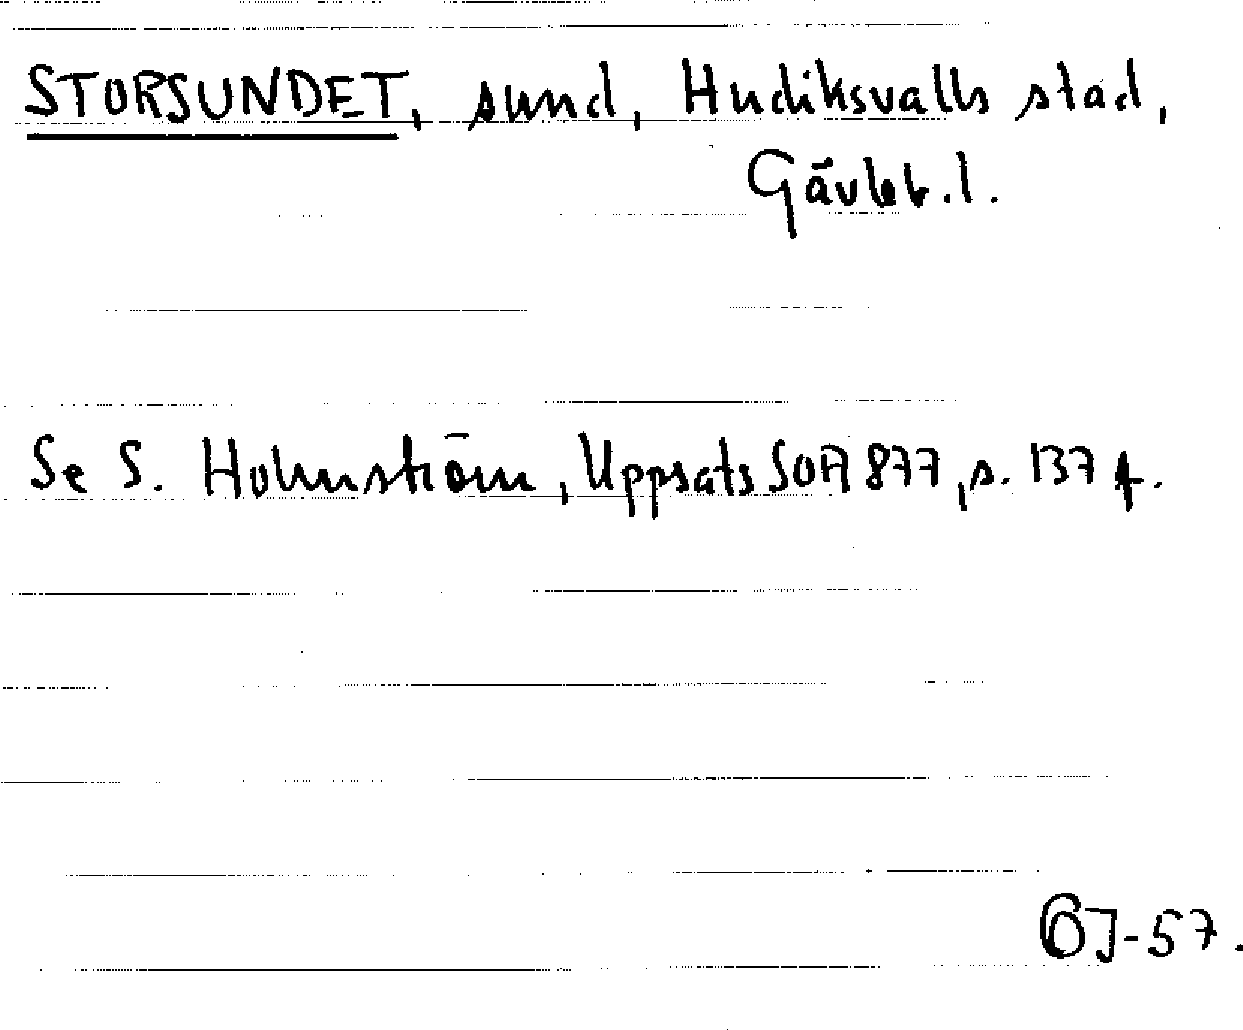 STORSUNDET, sund, Hudiksvalls stad,
Gävleb.l.
Se S. Holmström, Uppsats SOA 877, s. 137 f.
ÖJ-57.